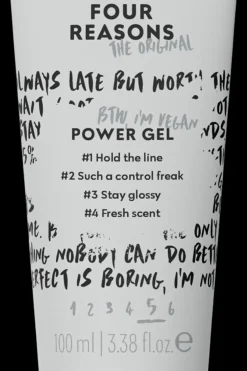 FOUR
REASONS
THE ORIGINAL
ALWAYS LATE BUT WORTH THE
WAIT NOT
STAY BTW, I'M VEGAN
POWER GEL
#1 Hold the line
#2 Such a control freak
#3 Stay glossy
#4 Fresh scent
ME. THE ONLY
THING NOBODY CAN DO BETTER
PERFECT IS BORING, I'M NOT
1 2 3 4 5 6
100 ml | 3.38 fl.oz. e